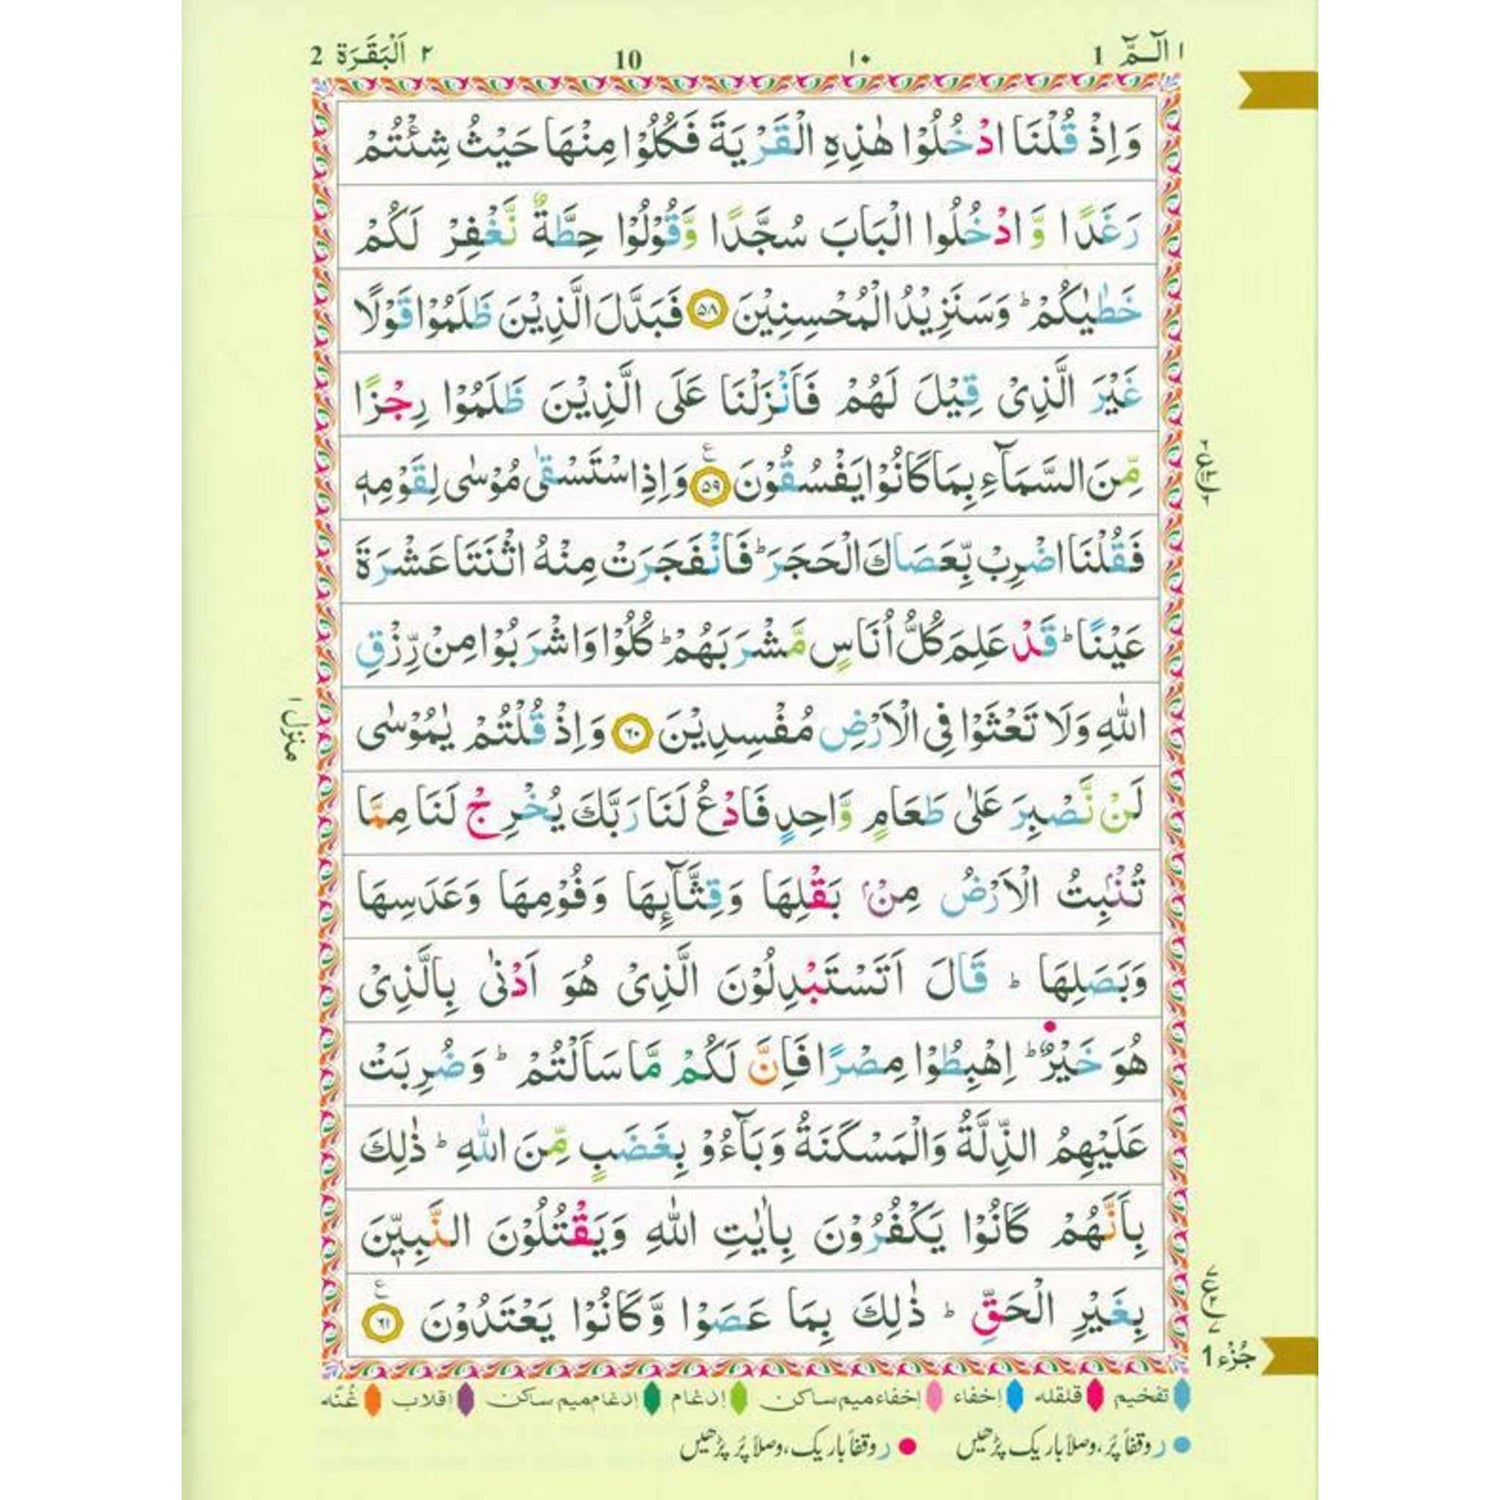 ١ الٓمّٓ 1 ١٠ 10 ٢ اَلْبَقَرَة 2
وَاِذْ قُلْنَا ادْخُلُوْا هٰذِهِ الْقَرْيَةَ فَكُلُوْا مِنْهَا حَيْثُ شِئْتُمْ
رَغَدًا وَّ ادْخُلُوا الْبَابَ سُجَّدًا وَّقُوْلُوْا حِطَّةٌ نَّغْفِرْ لَكُمْ
خَطٰيٰكُمْ ؕ وَسَنَزِيْدُ الْمُحْسِنِيْنَ ۝۵۸ فَبَدَّلَ الَّذِيْنَ ظَلَمُوْا قَوْلًا
غَيْرَ الَّذِىْ قِيْلَ لَهُمْ فَاَنْزَلْنَا عَلَى الَّذِيْنَ ظَلَمُوْا رِجْزًا
مِّنَ السَّمَآءِ بِمَا كَانُوْا يَفْسُقُوْنَ ۝۵۹ ع وَاِذِ اسْتَسْقٰى مُوْسٰى لِقَوْمِهٖ
فَقُلْنَا اضْرِبْ بِّعَصَاكَ الْحَجَرَ ؕ فَانْفَجَرَتْ مِنْهُ اثْنَتَا عَشْرَةَ
عَيْنًا ؕ قَدْ عَلِمَ كُلُّ اُنَاسٍ مَّشْرَبَهُمْ ؕ كُلُوْا وَاشْرَبُوْا مِنْ رِّزْقِ
اللّٰهِ وَلَا تَعْثَوْا فِى الْاَرْضِ مُفْسِدِيْنَ ۝۶۰ وَاِذْ قُلْتُمْ يٰمُوْسٰى
منزل ١
لَنْ نَّصْبِرَ عَلٰى طَعَامٍ وَّاحِدٍ فَادْعُ لَنَا رَبَّكَ يُخْرِجْ لَنَا مِمَّا
تُنْۢبِتُ الْاَرْضُ مِنْۢ بَقْلِهَا وَقِثَّآئِهَا وَفُوْمِهَا وَعَدَسِهَا
وَبَصَلِهَا ؕ قَالَ اَتَسْتَبْدِلُوْنَ الَّذِىْ هُوَ اَدْنٰى بِالَّذِىْ
هُوَ خَيْرٌ ؕ اِهْبِطُوْا مِصْرًا فَاِنَّ لَكُمْ مَّا سَاَلْتُمْ ؕ وَضُرِبَتْ
عَلَيْهِمُ الذِّلَّةُ وَالْمَسْكَنَةُ وَبَآءُوْ بِغَضَبٍ مِّنَ اللّٰهِ ؕ ذٰلِكَ
بِاَنَّهُمْ كَانُوْا يَكْفُرُوْنَ بِاٰيٰتِ اللّٰهِ وَيَقْتُلُوْنَ النَّبِيّٖنَ
بِغَيْرِ الْحَقِّ ؕ ذٰلِكَ بِمَا عَصَوْا وَّكَانُوْا يَعْتَدُوْنَ ۝۶۱ ع
جُزْء 1
تفخیم قلقله إخفاء إخفاء میم ساکن إدغام إدغام میم ساکن إقلاب غُنّه
ر وقفاً پُر، وصلاً باریک پڑھیں ر وقفاً باریک، وصلاً پُر پڑھیں